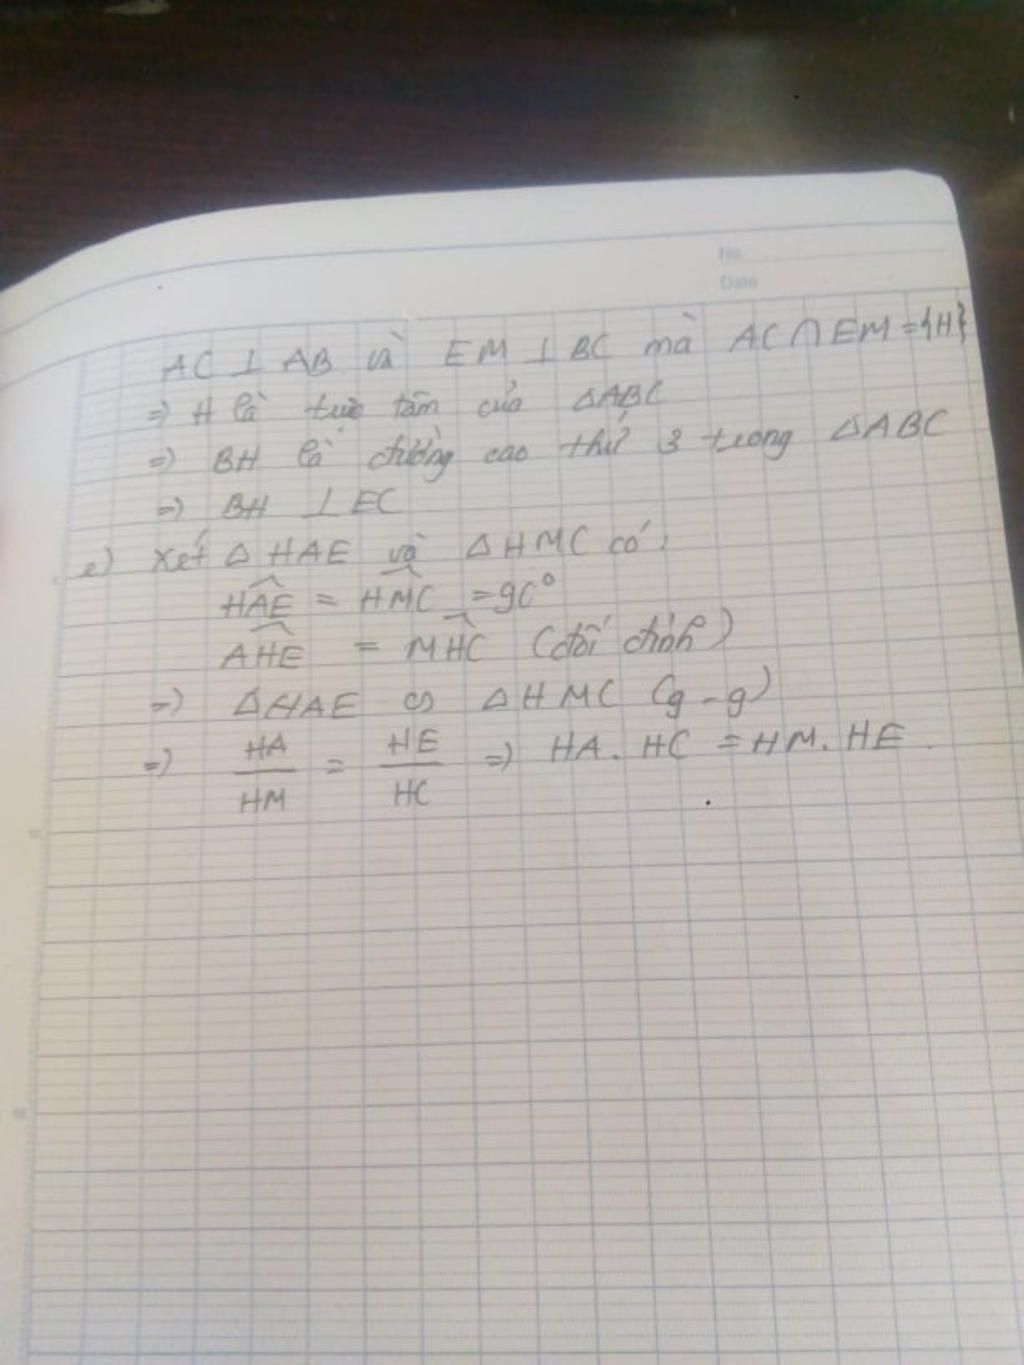 No.
Date
AC ⊥ AB và EM ⊥ BC mà AC ∩ EM = {H}
=> H là trực tâm của △ABC
=> BH là đường cao thứ 3 trong △ABC
=> BH ⊥ EC
e) Xét △HAE và △HMC có:
\widehat{HAE} = \widehat{HMC} = 90°
\widehat{AHE} = \widehat{MHC} (đối đỉnh)
=> △HAE ∽ △HMC (g-g)
=> HA/HM = HE/HC => HA. HC = HM. HE.